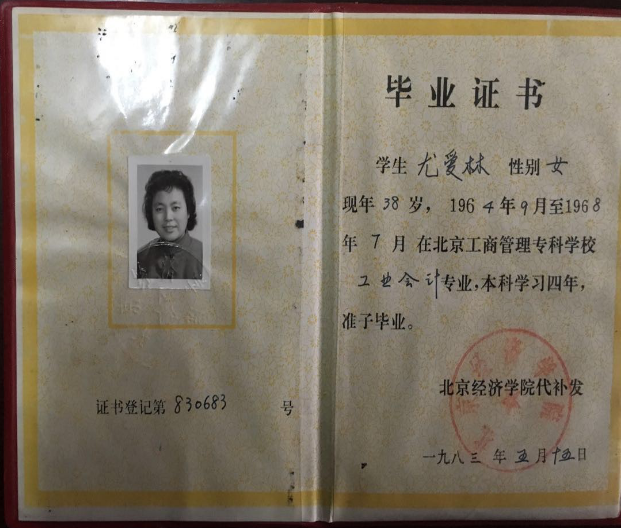 证书登记第 830683 号
毕业证书
学生 尤爱林 性别 女
现年 38 岁， 1964 年 9 月至 1968
年 7 月 在北京工商管理专科学校
工业会计专业，本科学习四年，
准予毕业。
北京经济学院代补发
一九八三 年 五 月 十五 日